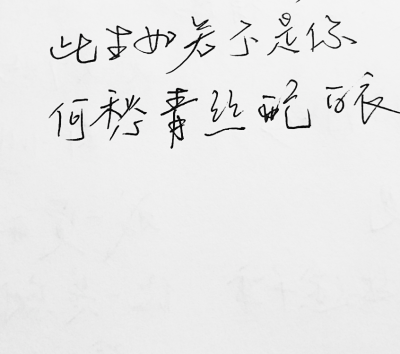 此生如若不是你
何青丝配白衣